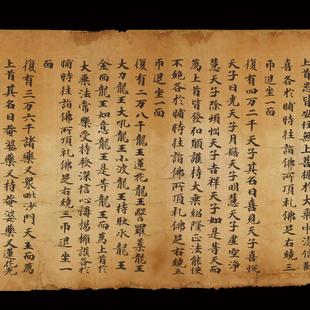 上首悉皆安住無上菩提於大乘中深信歡
喜各於晡時往詣佛所頂礼佛足右繞三
帀退坐一面
復有四万二千天子其名曰喜見天子喜悅
天子日光天子月髻天子明慧天子虛空淨
慧天子除煩惱天子吉祥天子如是等天而
為上首皆發弘願護持大乘紹隆正法能使
不絕各於晡時往詣佛所頂礼佛足右繞三
帀退坐一面
復有二万八千龍王蓮花龍王翳羅葉龍王
大力龍王大吼龍王小波龍王持駃水龍王
金面龍王如意龍王如是等龍王而為上首於
大乘法常樂受持發深信心稱揚擁護各於
晡時往詣佛所頂礼佛足右繞三帀退坐一
面
復有三万六千諸藥叉眾毗沙門天王而為
上首其名曰菴婆藥叉持菴婆藥叉蓮花光